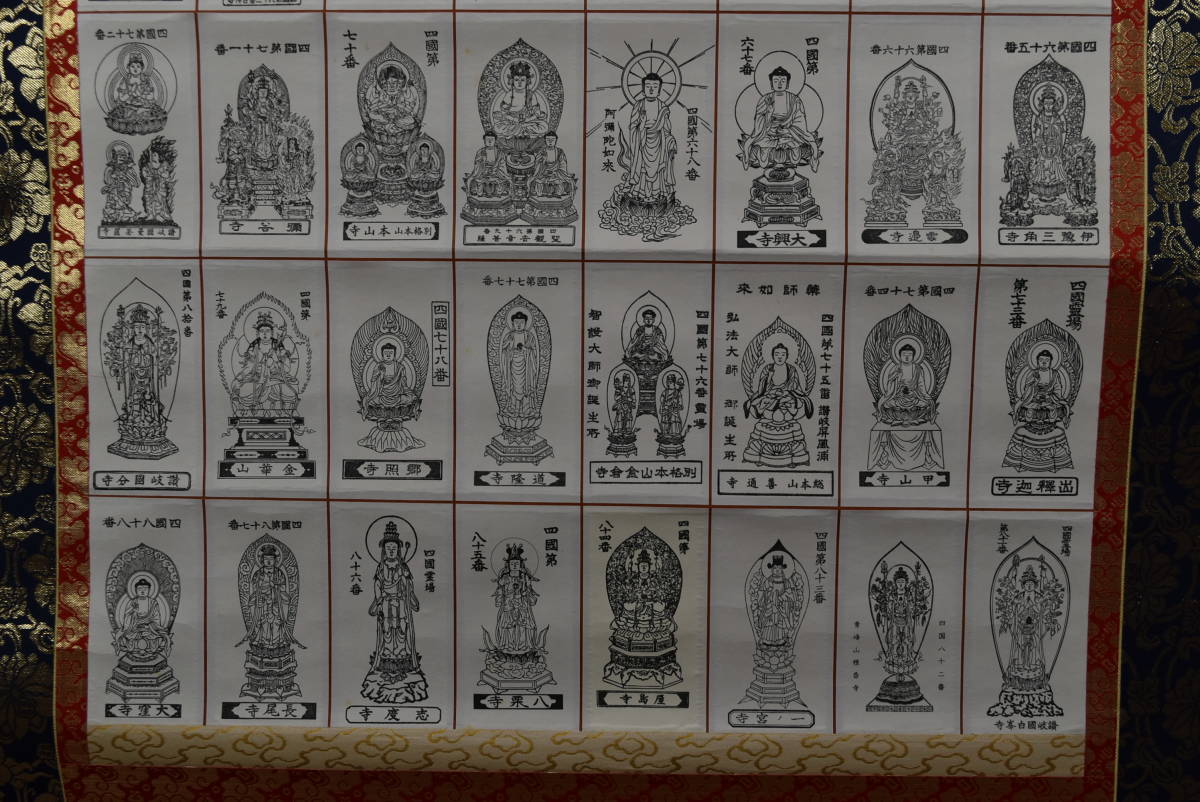 四國第六十五番
伊豫三角寺
四國第六十六番
雲邊寺
四國第
六十七番
大興寺
四國第六十八番
阿彌陀如來
四國第六十九番
聖觀世音菩薩
四國第
七十番
別格本山 本山寺
四國第七十一番
彌谷寺
四國第七十二番
四國靈場
第七十三番
出釋迦寺
四國第七十四番
甲山寺
藥師如來
四國第七十五番 讃岐屏風浦
弘法大師 御誕生所
総本山 善通寺
四國第七十六番靈場
智證大師御誕生所
別格本山金倉寺
四國第七十七番
道隆寺
四國七十八番
鄕照寺
四國第
七十九番
金華山
四國第八拾番
讃岐國分寺
四國靈場
讃岐國白峯寺
四国八十二番
青峰山根香寺
四國第八十三番
一ノ宮寺
四國第
八十四番
屋島寺
四國第
八十五番
八栗寺
四國靈場
八十六番
志度寺
四國第八十七番
長尾寺
四國八十八番
大窪寺